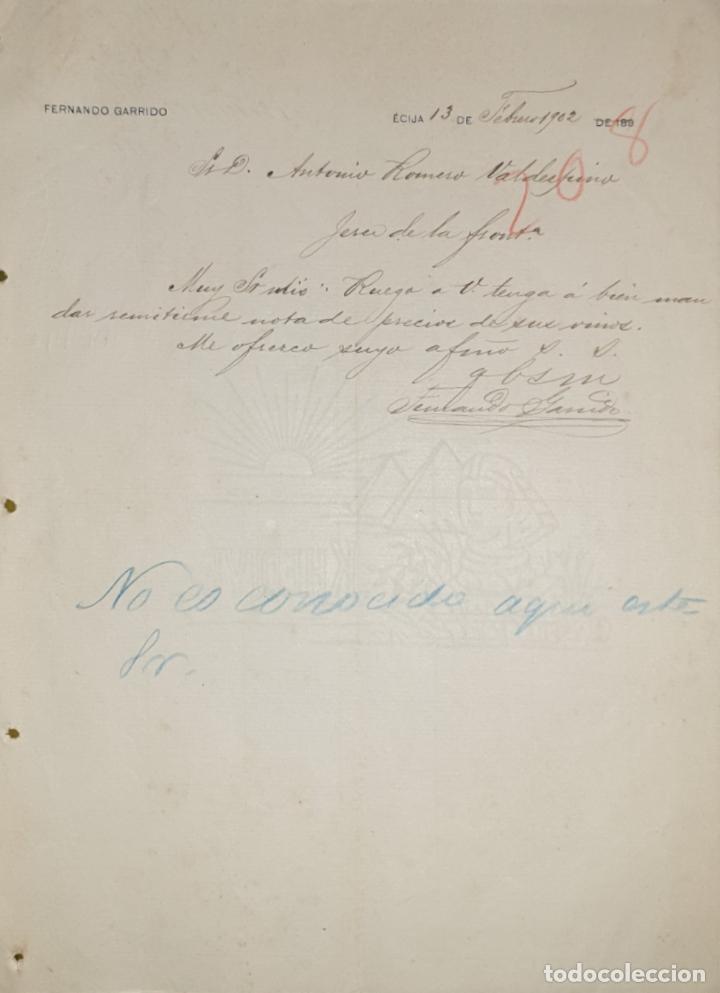 FERNANDO GARRIDO
ÉCIJA 13 DE Febrero 1902 DE 189
708
Sr D. Antonio Romero Valdespino
Jerez de la Front.ª
Muy Sr mío: Ruego a V. tenga á bien man
dar remitirme nota de precios de sus vinos.
Me ofrezco suyo afmo S. S.
q b s m
Fernando Garrido
No es conocido aquí este
Sr.
todocoleccion.net